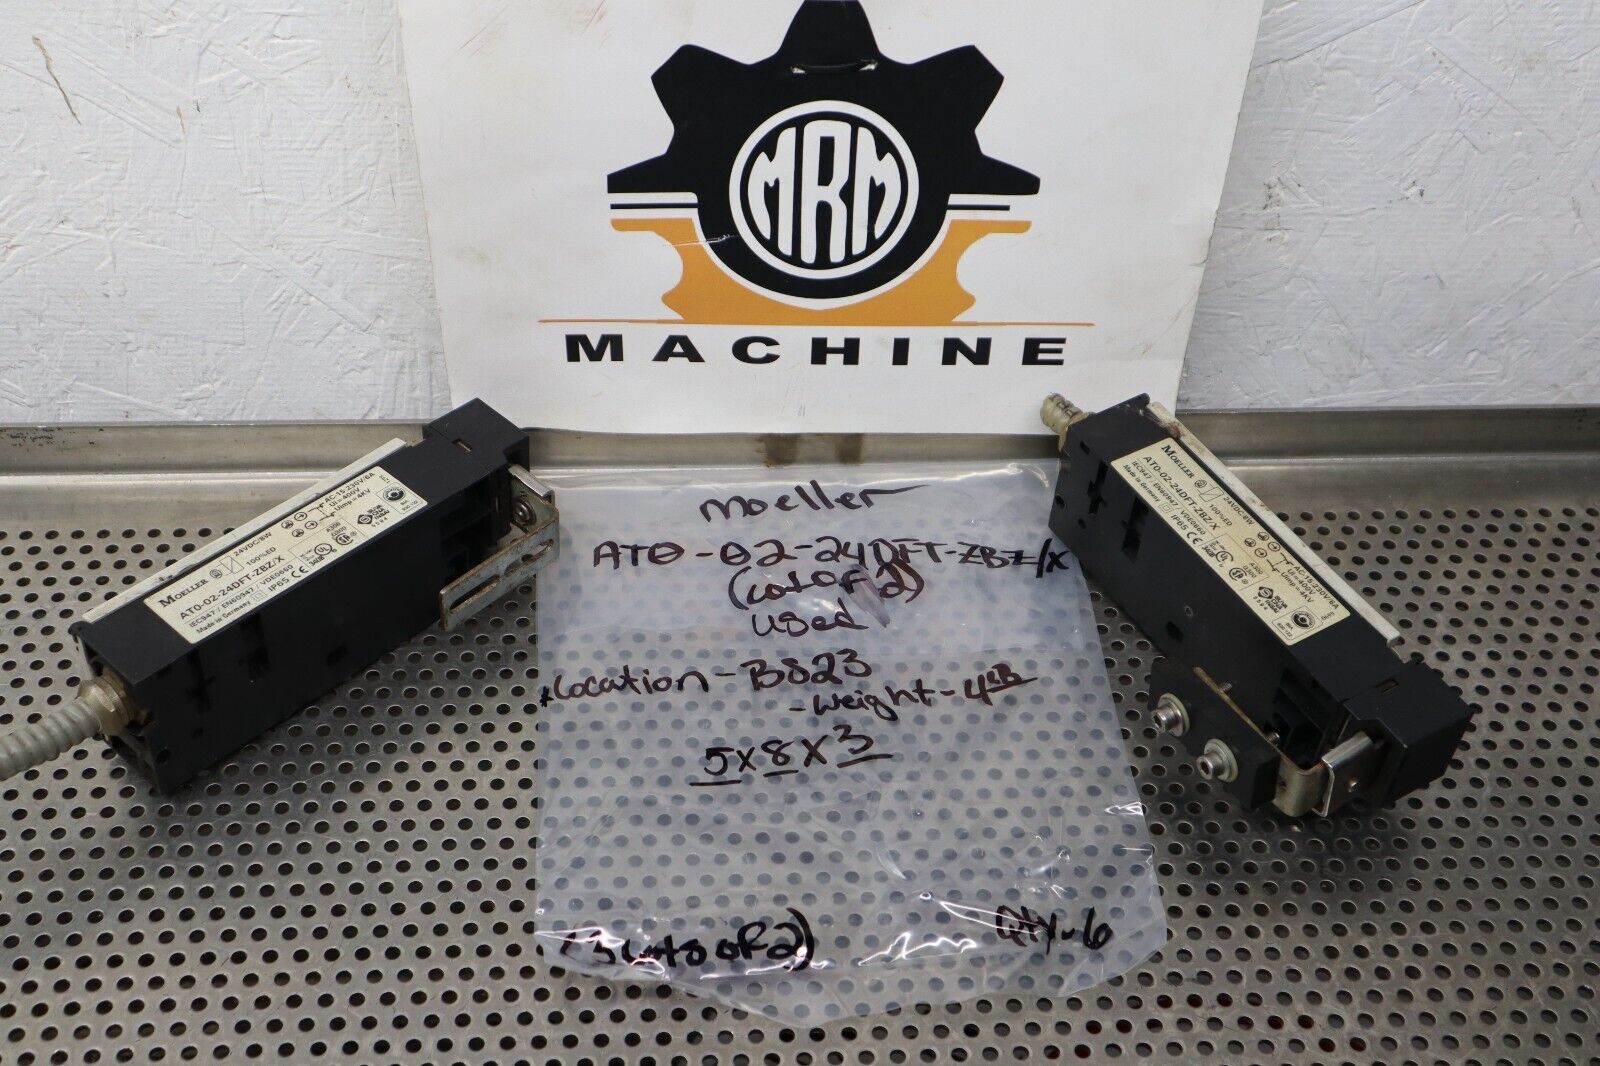 MRM
MACHINE
MOELLER
24VDC/8W
100%ED
AT0-02-24DFT-ZBZ/X
IEC947 / EN60947 / VDE0660
Made in Germany
IP65 CE
AC-15:230V/6A
Ui=400V
Uimp=4KV
A300
Q300
UL
Moeller
AT0-02-24DFT-ZBZ/X
(Lot of 2)
Used
*Location-B823
-Weight-4LB
5x8x3
(3 Lots of 2)
Qty-6
MOELLER
24VDC/8W
100%ED
AT0-02-24DFT-ZBZ/X
IEC947 / EN60947 / VDE0660
Made in Germany
IP65
AC-15:230V/6A
Ui=400V
Uimp=4KV
A300
Q300
UL